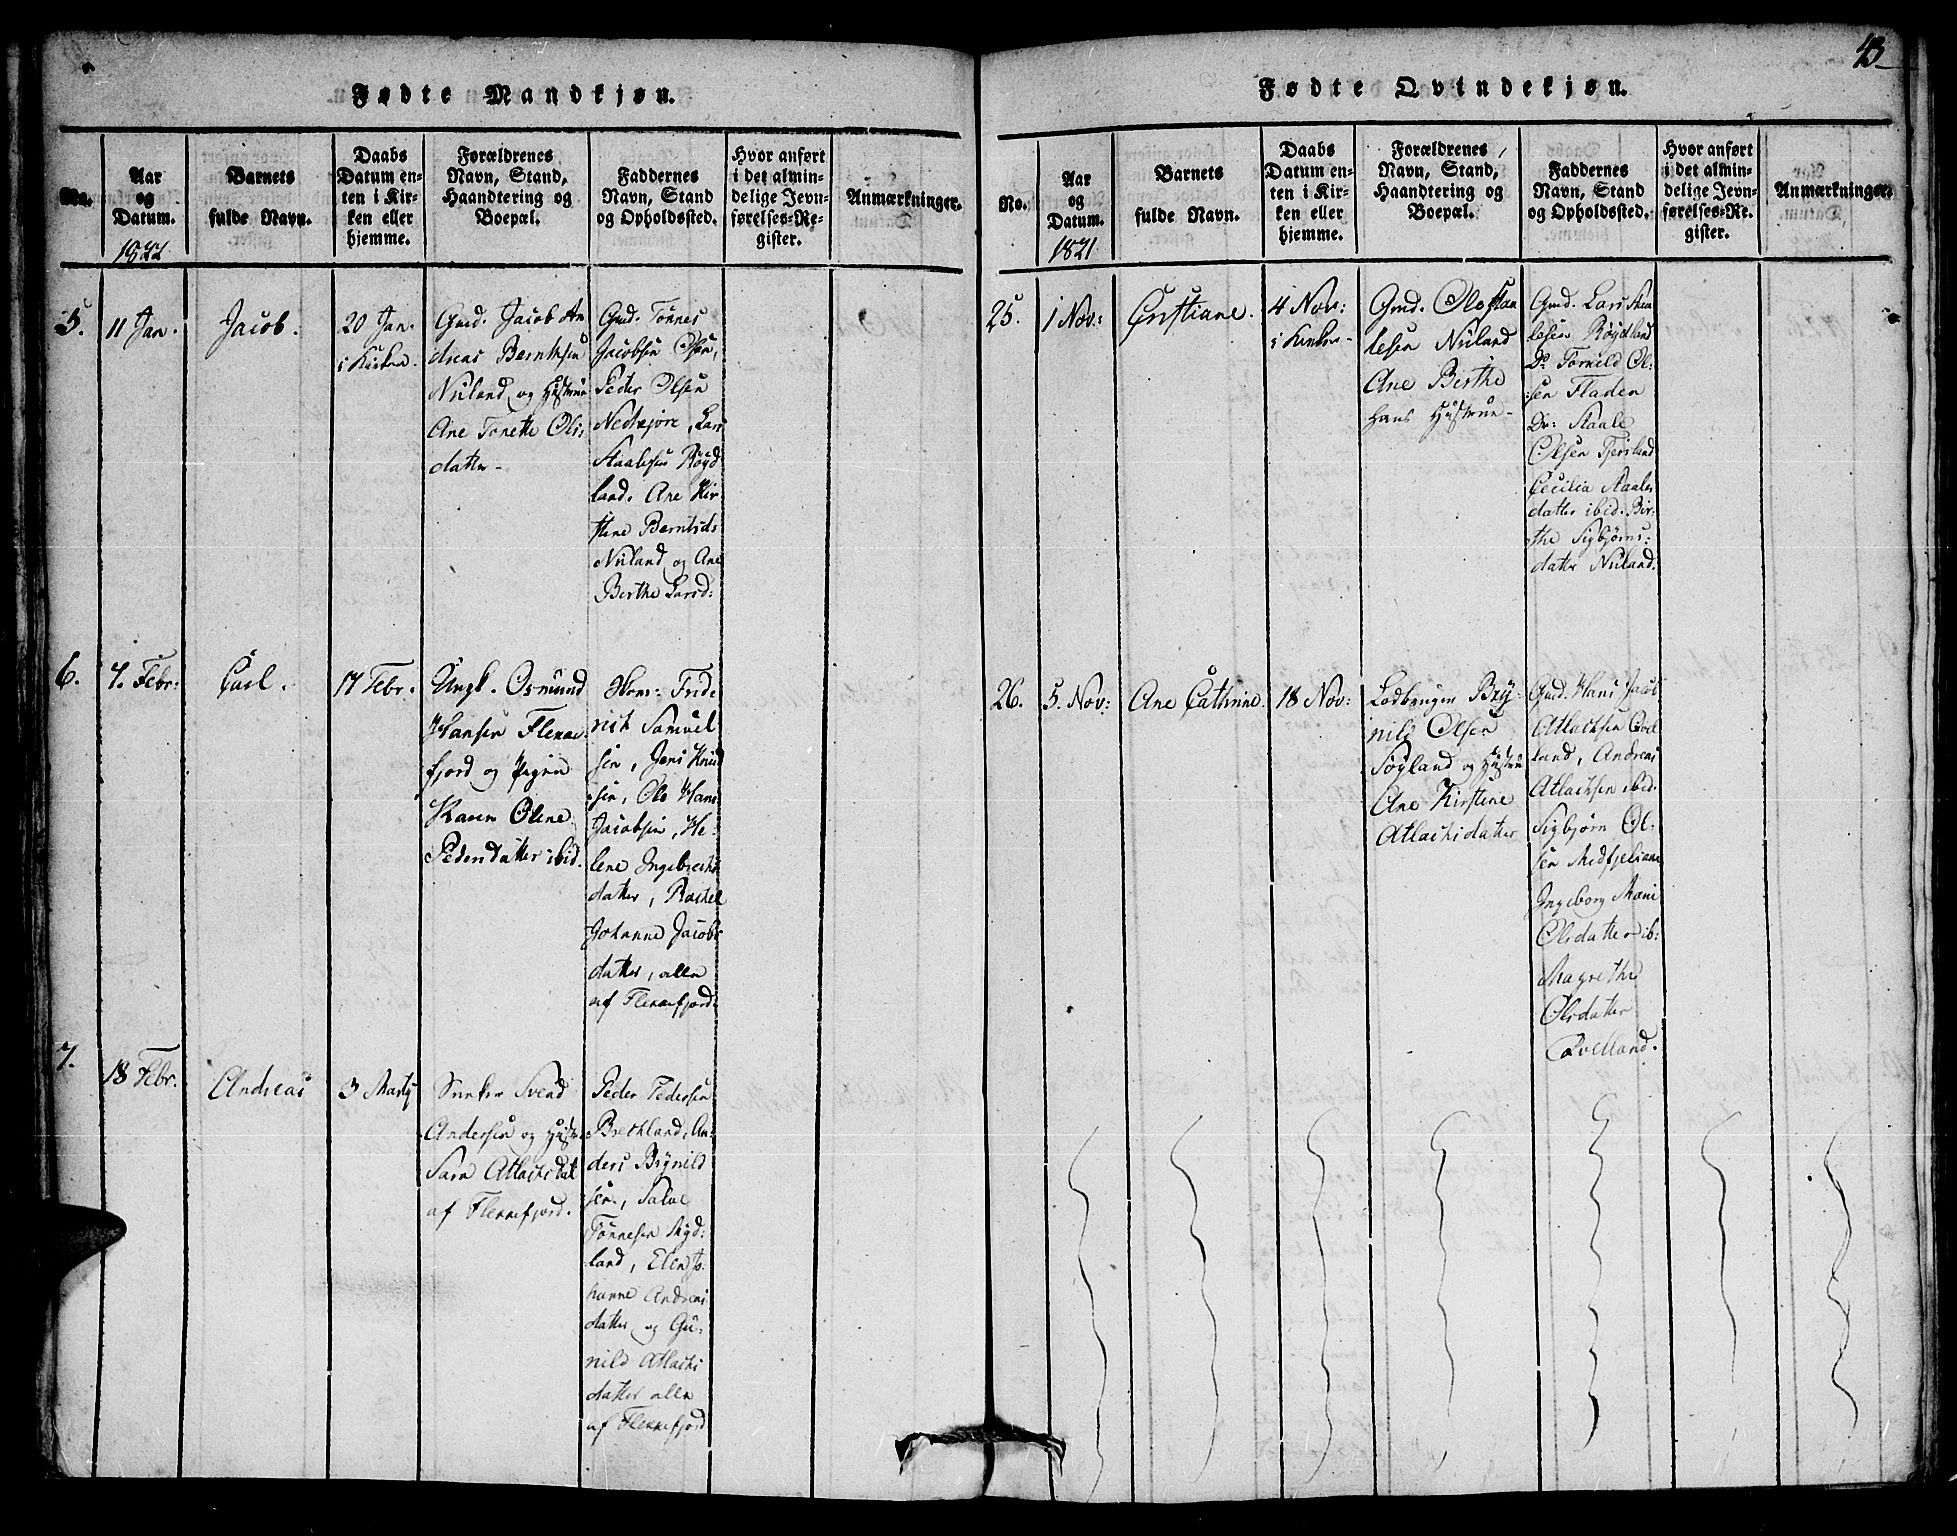 43
Fødte Mandkjøn.
No.
Aar
og
Datum.
1822
Barnets
fulde Navn.
Daabs
Datum en-
ten i Kir-
ken eller
hjemme.
Forældrenes
Navn, Stand,
Haandtering og
Boepæl.
Faddernes
Navn, Stand
og Opholdssted.
Hvor anført
i det almin-
delige Jevn-
førelses-Re-
gister.
Anmærkninger.
5.
11 Jan.
Jacob.
20 Jan.
i Kirken.
Gmd. Jacob An
dreas Berntsen
Nuland og Hustrue
Ane Tonette Ols:
datter
Gmd. Tönnes
Jacobsen Osen,
Peder Olsen
Lars
Staalesen Röyd
land. Ane Kir
stene Berntsd:
Nuland og Ane
Berthe Larsd:
6.
7. Febr:
Carl.
17 Febr.
Ungk. Osmund
Hansen Flekke
fjord og Pigen
Karen Olene
Pedersdatter ibid.
Hrns: Fride
rich Samuel
sen, Jens Knud
sen, Ole Hans
Jacobsen, He-
lene Ingebrechts
datter, Rachel
Johanne Jacobs
datter, alle
af Flekkefjord
7.
18 Febr.
Andreas
3 Marty
Svend
Andersen og Hustr.
Sara Atlachsdat
af Flekkefjord.
Peder Pedersen
Brekland, An-
ders Brynild
sen, Salve
Tönnesen Myd-
land, Elen Jo-
hanne Andreas
datter og Gu-
nild Atlachs
datter alle
af Flekkefjord
Fødte Qvindekjøn.
No.
Aar
og
Datum.
1821
Barnets
fulde Navn.
Daabs
Datum en-
ten i Kir-
ken eller
hjemme.
Forældrenes
Navn, Stand,
Haandtering og
Boepæl.
Faddernes
Navn, Stand
og Opholdssted.
Hvor anført
i det almin-
delige Jevn-
førelses-Re.
gister.
Anmærkninger.
25.
1 Nov:
Cristiane.
4 Nov:
i Kirken
Gmd. Ole Staa
lesen Nuland
Ane Berthe
hans Hustrue
Gmd. Lars Staa
lesen Röydland
Do Tornild Ol:
sen Fladen
Do: Staale
Olsen Tjersland
Cecilia Staales
datter ibid. Bir:
the Sigbjørns:
datter Nuland.
26.
5. Nov:
Ane Cathrine.
18 Nov:
Lodbruger Bry
nild Olsen
Söyland og Hustrue
Ane Kirstine
Atlachsdatter
Gmd. Hans Jacob
Atlachsen Qvel
land, Andreas
Atlachsen ibid.
Sigbjørn Ol:
sen
Ingeborg Marie
Olsdatter ib:
Magrethe
Olsdatter
Qvelland.